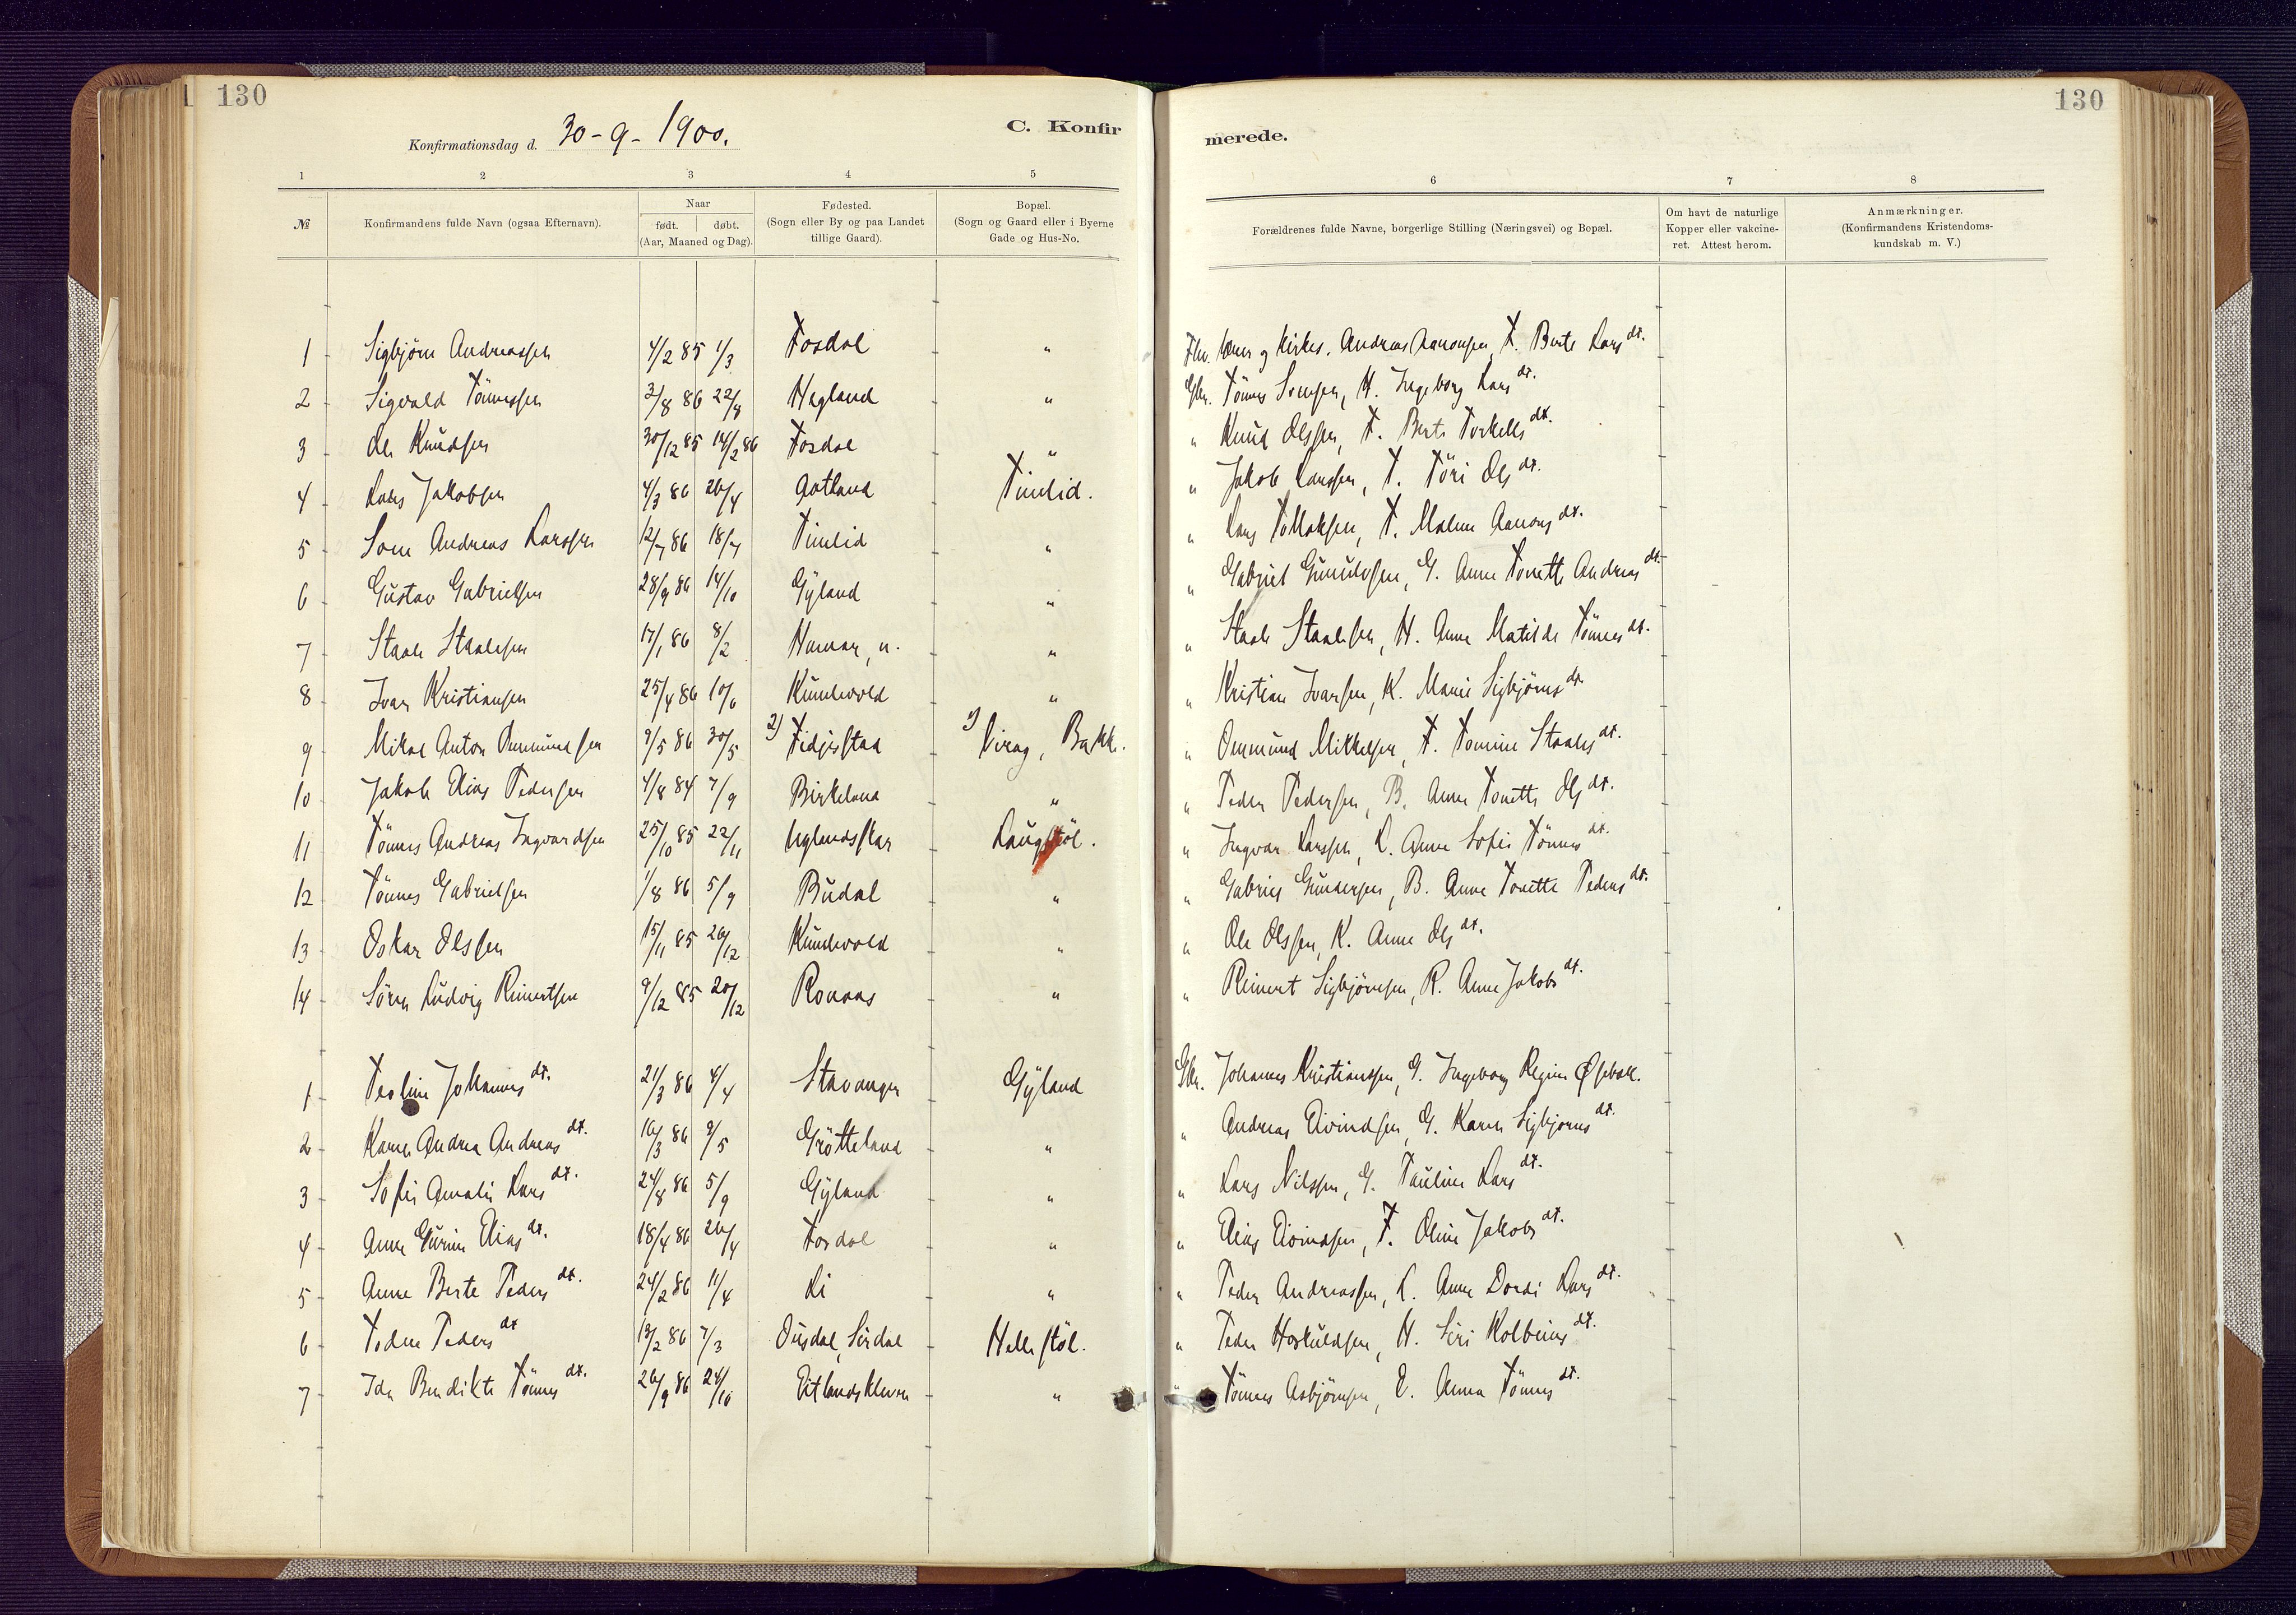 130
Konfirmationsdag d. 30-9-1900.
C. Konfir
1 2 3 4 5
№
Konfirmandens fulde Navn (ogsaa Efternavn).
Naar
født. døbt.
(Aar, Maaned og Dag).
Fødested.
(Sogn eller By og paa Landet
tillige Gaard).
Bopæl.
(Sogn og Gaard eller i Byerne
Gade og Hus-No.
1 Sigbjörn Andreassen 4/2 85 1/3 Tosdal "
2 Sigvald Tönnessen 3/8 86 22/8 Hegland "
3 Ole Knudsen 30/12 85 14/2 86 Tosdal "
4 Lars Jakobsen 4/3 86 26/4 Aatland Timlid.
5 Andreas Larssen 12/7 86 18/7 Timlid "
6 Gustav Gabrielsen 28/9 86 14/10 Gyland "
7 Staale Staalesen 17/1 86 8/2 "
8 Ivar Kristiansen 25/4 86 10/6 Kumlevold "
9 Mikal Anton Ommundsen 9/5 86 30/5 2) Fidjestad 1) Virag, Bakke.
10 Jakob Elias Pedersen 4/8 84 7/9 Birkeland "
11 Tönnes Andreas Ingvardsen 25/10 85 22/11 Uglandsskar Laugstöl.
12 Tönnes Gabrielsen 1/8 86 5/9 Budal "
13 Oskar Olssen 15/11 85 26/12 Kumlevold "
14 Sören Ludvig Reinertsen 9/12 85 20/12 Roaas "
1 Teoline Johannes dt. 21/3 86 4/4 Stavanger Gyland
2 Karen Andrea Andreas dt. 16/3 86 9/5 Grötteland "
3 Sofie Amalie Lars dt. 24/8 86 5/9 Gyland "
4 Anne Gurine Elias dt. 18/4 86 26/4 Tosdal "
5 Anne Berte Peders dt. 24/2 86 11/4 Li "
6 Todne Peders dt 19/2 86 7/3 Ousdal, Sirdal Hellestöl.
7 Ida Bendikte Tönnes dt. 26/9 86 24/10 Eitlandskleven "
130
merede.
6 7 8
Forældrenes fulde Navne, borgerlige Stilling (Næringsvei) og Bopæl.
Om havt de naturlige
Kopper eller vakcine-
ret. Attest herom.
Anmærkninger.
(Konfirmandens Kristendoms-
kundskab m. V.)
Fhv. lærer og kirkes. Andreas Aanonsen, T. Berte Lars dt.
Gbr. Tönnes Svensen, H. Ingeborg Lars dt.
" Knud Olssen, T. Berte Torkells dt.
" Jakob Larssen, T. Töri Ols dt.
" Lars Tollaksen, T. Malene Aanons dt.
" Gabriel Gunuldsen, G. Anne Tonette Andreas dt.
" Staale Staalesen, H. Anne Matilde Tönnes dt.
" Kristian Ivarsen, K. Marie Sigbjörns dt.
" Ommund Mikkelsen, F. Tomine Staales dt.
" Peder Pedersen, B. Anne Tonette Ols dt.
" Ingvar Larssen, L. Anne Sofie Tönnes dt.
" Gabriel Gundersen, B. Anne Tonette Peders dt.
" Ole Olssen, K. Anne Ols dt.
" Reinert Sigbjörnsen, R. Anne Jakobs dt.
Gbr. Johannes Kristianssen, G. Ingeborg Regine
" Andreas Eivindsen, G. Karen Sigbjörns dt.
" Lars Nilssen, G. Pauline Lars dt.
" Elias Eivindsen, T. Oline Jakobs dt.
" Peder Andreassen, L. Anne Dordi Lars dt.
" Peder Hoskuldsen, H. Siri Kolbeins dt.
" Tönnes Asbjörnsen, E. Anna Tönnes dt.